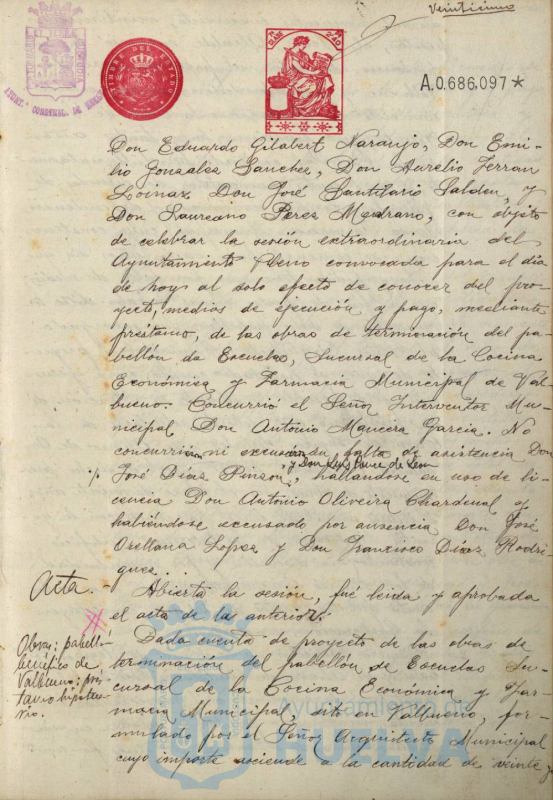 Veintiuno
TIMBRE DEL ESTADO
A.0.686.097*
Don Eduardo Gilabert Naranjo, Don Emi-
lio Gonzalez Sanchez, Don Aurelio Ferran
Loinaz, Don José Santilario Salden, y
Don Laureano Perez Medrano, con objeto
de celebrar la sesión extraordinaria del
Ayuntamiento Pleno convocada para el día
de hoy al solo efecto de conocer del pro-
yecto, medios de ejecución y pago, mediante
préstamo, de las obras de terminación del pa-
bellón de Escuelas, Sucursal de la Cocina
Económica y Farmacia Municipal de Val-
bueno. Concurrió el Señor Interventor Mu-
nicipal Don Antonio Mancera Garcia. No
concurrieron ni excusaron su falta de asistencia Don
y Don Luis Ponce de Leon
José Días Pinson, hallandose en uso de li-
cencia Don Antonio Oliveira Chardenal y
habiéndose excusado por ausencia Don José
Orellana Lopez y Don Francisco Díaz Rodri-
guez.
Acta.- Abierta la sesión, fué leida y aprobada
el acta de la anterior.
Obras: pabellón
benéfico de
Valbueno: prés-
tamo hipoteca-
rio.
Dada cuenta de proyecto de las obras de
terminación del pabellón de Escuelas Su-
cursal de la Cocina Económica y Far-
macia Municipal, sito en Valbueno, for-
mulado por el Señor Arquitecto Municipal
cuyo importe asciende a la cantidad de veinte y
Ayuntamiento de
HUELVA